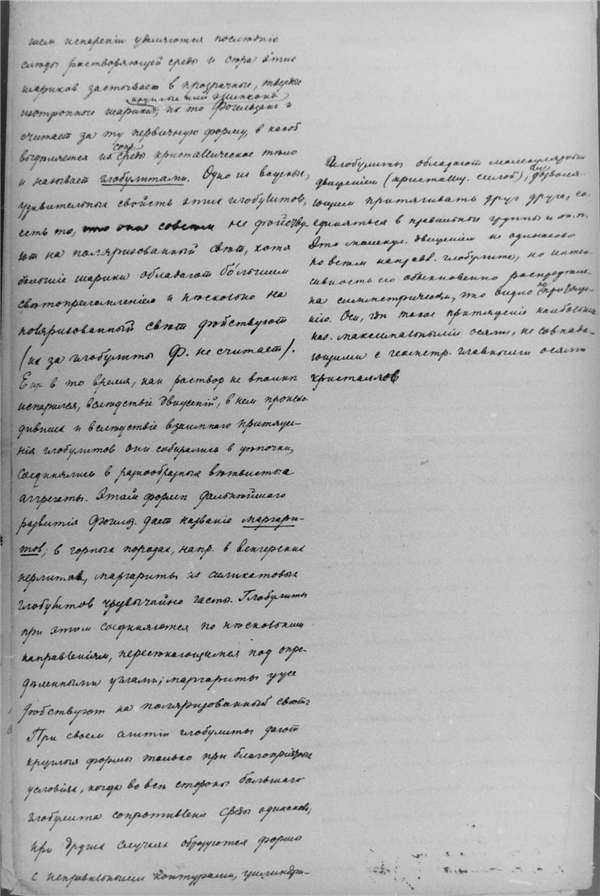 шем испареніи удаляются последніе
следы растворяющей среды и
шариков застывает в прозрачные, твердые
круглые или
изотропные шарики; их то Фогельзанг и
считает за ту первичную форму, в какой
выделяется из среды кристаллическое тело
и называет глобулитами. Одно из важных,
удивительных свойств этих глобулитов,
есть то, что они совсем не действу
ют на поляризованный свет, хотя
большие шарики обладают большим
светопреломлением и несколько на
поляризованный свет действуют
(их за глобулиты Ф. не считает).
Еще в то время, как раствор не вполне
испарился, вследствіе движеній, в нем происхо
дивших и вследствіе взаимнаго притяже-
нія глобулитов они собирались в цепочки,
соединялись в разнообразные ветвистые
аггрегаты. Этим формам дальнейшаго
развитія Фогельз. дает названіе маргари-
тов; в горных породах, напр. в венгерских
перлитов, маргариты из силикатовых
глобулитов чрезвычайно часты. Глобулиты
при этом соединяются по нескольким
направленіям, пересекающимся под опре-
деленными углами; маргариты уже
действуют на поляризованный свет.
При своем слитіи глобулиты дают
круглыя формы только при благопріятных
условіях, когда во все стороны большаго
глобулита сопротивленіе среды одинаково;
при других случаях образуются формы
с неправильными контурами, цилиндри-
Глобулиты обладают молекулярным
движеніем (кристаллиц. силой), дозволя
ющим притягивать друг друга, со
единяться в правильные группы и т. п.
Это молекул. движеніе не одинаково
по всем направ. глобулита, но интен
сивность его обыкновенно распределе
на симметрически, это видно по
нію. Оси, где такое притяженіе наибольшее
наз. максимальными осями, не совпада
ющими с геометр. главными осями
кристаллов